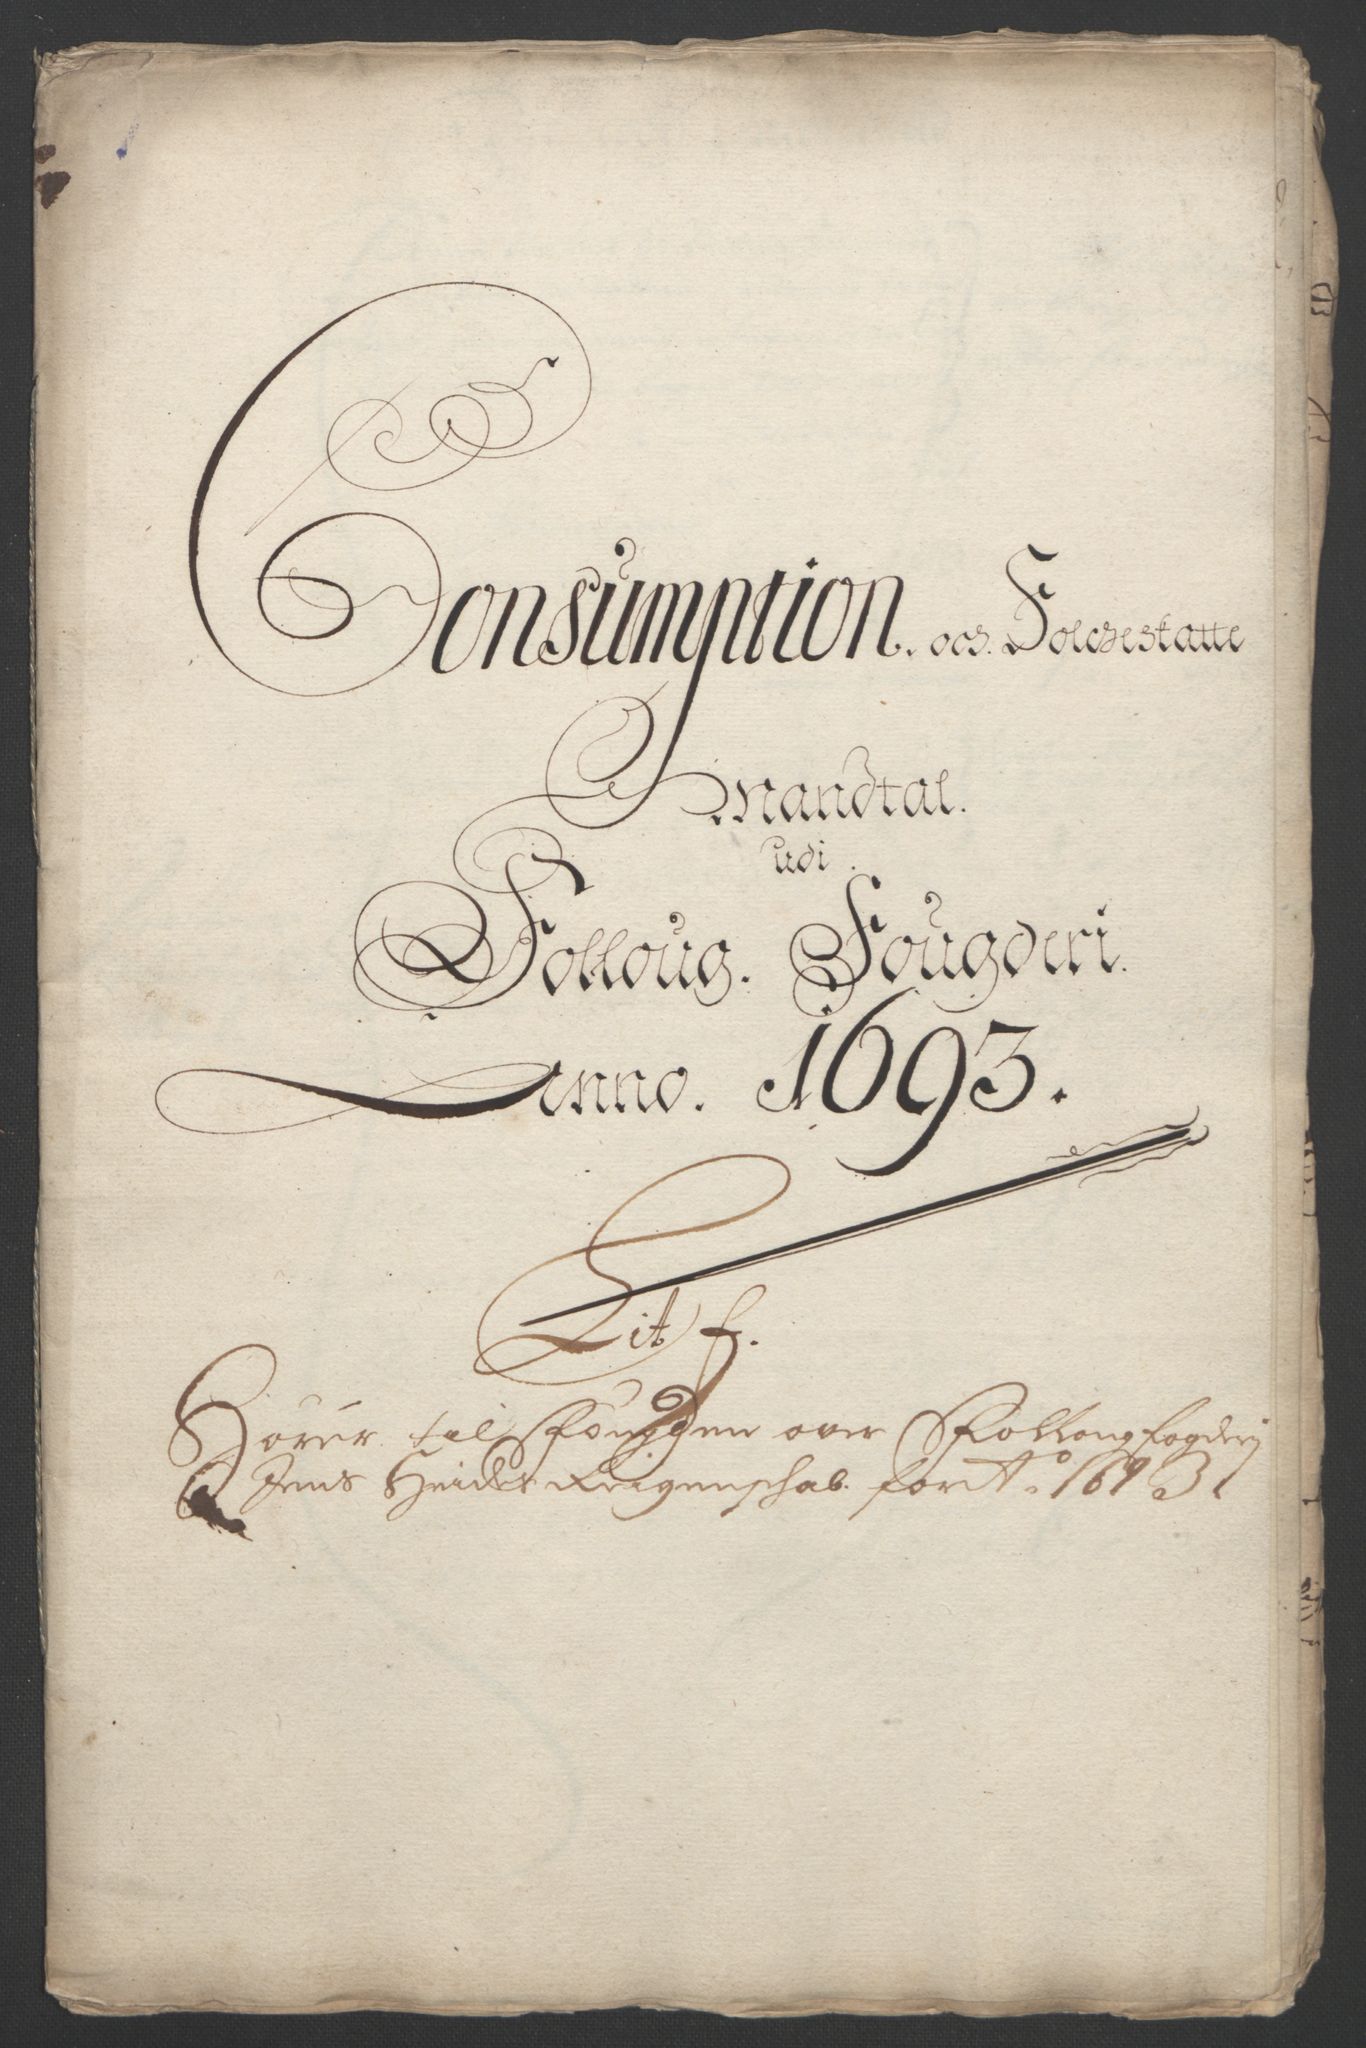 Consumption. och. Folchestatte
Mandtal.
udi.
Folloug. Fougderi.
Anno. 1693.
Lit f.
Hører til Fougden over Follougfogderj
Jens Heides Reigenschab. for Ao. 1693